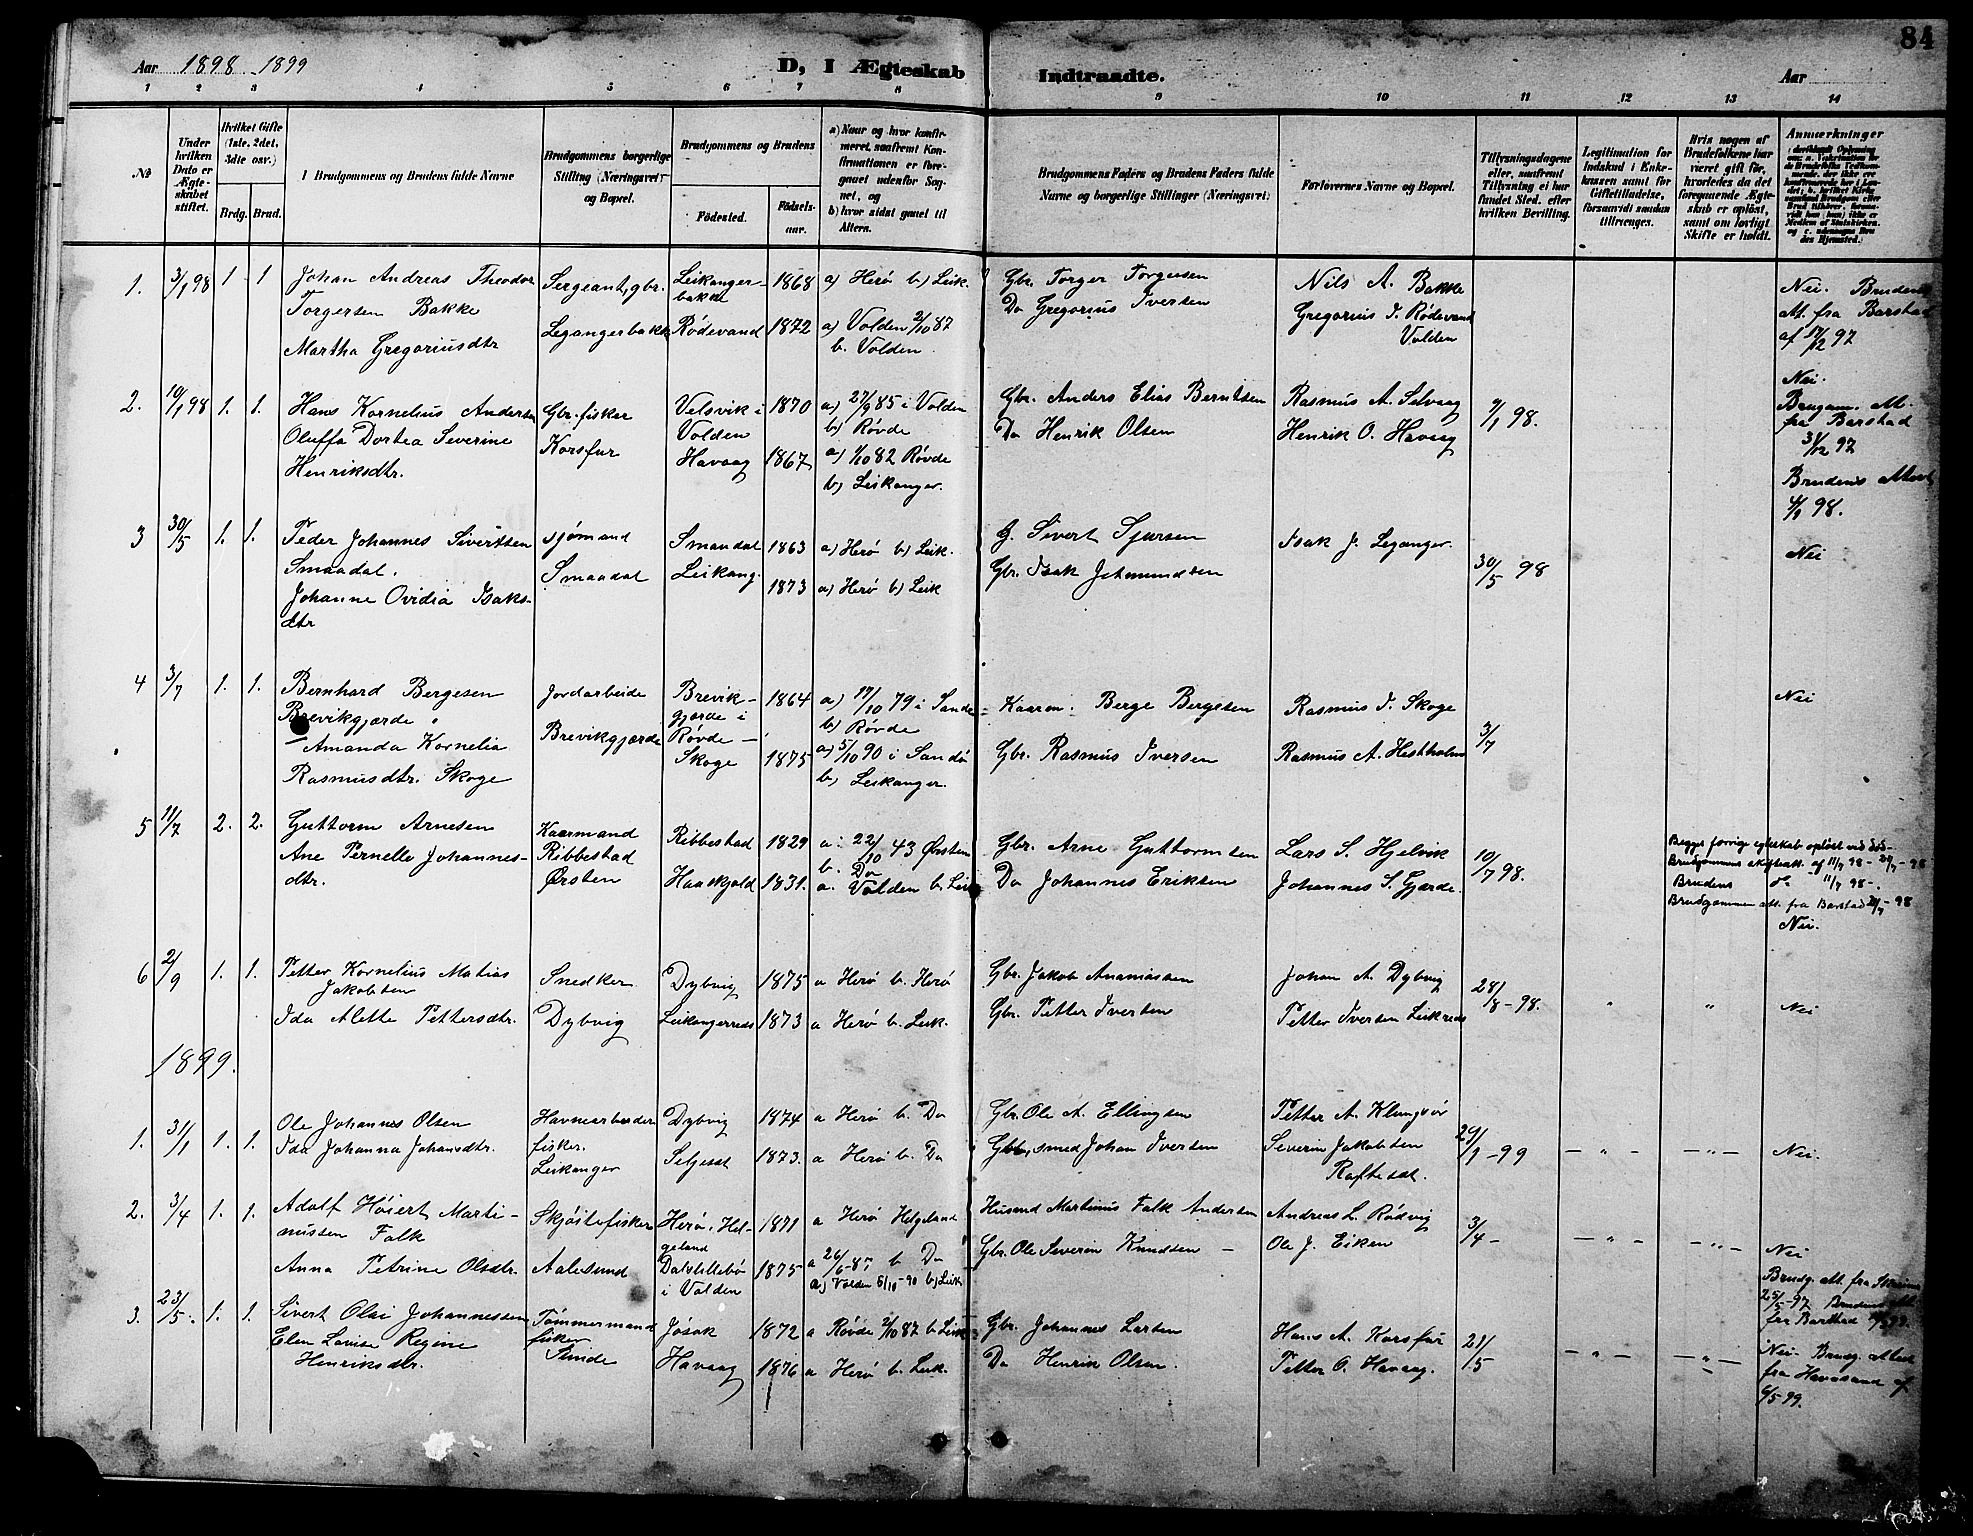 84
Aar 1898-1899
D, I Ægteskab Indtraadte.
Aar
1 2 3 4 5 6 7 8 9 10 11 12 13 14
No
Under hvilken Dato er Ægteskabet stiftet.
Hvilket Gifte (1ste, 2det, 3die osv.)
Brdg. Brud.
I Brudgommens og Brudens fulde Navne
Brudgommens borgerlige Stilling (Næringsvei) og Bopæl.
Brudgommens og Brudens
Födested.
Födsels-aar.
a) Naar og hvor konfirmeret, saafremt Konfirmationen er foregaaet udenfor Sognet, og
b) hvor sidst gaaet til Alters.
Brudgommens Faders og Brudens Faders fulde Navne og borgerlige Stillinger (Næringsvei)
Forlovernes Navne og Bopæl.
Tillysningsdagene eller, saafremt Tillysning ei har fundet Sted, efter hvilken Bevilling.
Legitimation for Indskud i Enkekassen samt for Giftetilladelse, forsaavidt saadan tiltrænges.
Hvis nogen af Brudefolkene har været gift för, hvorledes da det foregaaende Ægteskab er oplöst, samt om lovligt Skifte er holdt.
Anmærkninger
1. 3/1 98 1 1 Johan Andreas Theodor Torgersen Bakke
Sergeant, gbr. Leikangerbakke 1868 a) Herø b) Leik.
Gbr. Torger Torgersen
Nils A. Bakke
Martha Gregoriusdtr
Legangerbakk Rødevand 1872 a) Volden 2/10 87 b. Volden
Do Gregorius Iversen
Gregorius I. Rødevand Volden
Nei. Brudens At. fra Barstad af 31/12 97
2. 10/1 98 1. 1. Hans Kornelius Andersen
Gbr. fisker Korsfur Velsvik i Volden 1870 a) 27/9 85 i Volden b) Røvde
Gbr. Anders Elias Berntsen
Rasmus A. Selvaag
Oluffa Dortea Severine Henriksdtr.
Havaag 1867 a) 1/10 82 Røvde b) Leikanger.
Do Henrik Olsen
Henrik O. Havaag
9/1 98.
Nei. Brugom. At. fra Barstad 31/12 97
Brudens Attest 4/1 98.
3 30/5 1. 1. Peder Johannes Sivertsen Smaadal.
Sjømand Smaadal Smaadal 1863 a) Herø b) Leik.
G. Sivert Sjursen
Isak J. Leganger.
Johanne Ovidia Isaksdtr
Leikang. 1873 a) Herø b) Leik
Gbr. Isak Johnundsen
30/5 98
Nei
4 3/7 1. 1. Bernhard Bergesen Brevikgjærde
Jordarbeide Brevikgjærde Brevikgjærde i Røvde 1864 a) 17/10 79 i Sande b) Røvde
Kaarm. Berge Bergesen
Rasmus I. Skoge
Amanda Kornelia Rasmusdtr. Skoge
Skoge 1875 a) 5/10 90 i Sandø b) Leikanger.
Gbr. Rasmus Iversen
Rasmus A. Hestholm
3/7
Nei
5 11/7 2. 2. Guttorm Arnesen
Kaarmand Ribbestad Ørsten Ribbestad 1829 a. 22/10 43 Ørsten b. Do
Gbr. Arne Guttormsen
Lars S. Hjelvik
Ane Pernelle Johannesdtr.
Haaskjold 1831. a. Volden b. Leik
Do Johannes Eriksen
Johannes S. Gjærde.
10/7 98.
Begges forrige egteskab opløst ved død.
Brudgommens skifteatt. af 11/7 98
Brudens do 11/7 98
Brudgommen att. fra Barstad
Nei.
6 2/9 1. 1. Petter Kornelius Matias Jakobsen
Snedker Dybvig 1875 a Herø b. Herø
Gbr. Jakob Ananiassen
Johan A. Dybvig
Ida Alette Pettersdtr.
Dybvig Leikangerreds 1873 a Herø b. Leik.
Gbr. Petter Iversen
Petter Iversen Leikreds
28/8-98.
" " Nei
1899.
1. 31/1 1. 1. Ole Johannes Olsen
Havnearbeider fisker. Leikanger Dybvig 1874 a Herø b. Do
Gbr. Ole A. Ellingsen
Petter A. Klungsør
Ida Johanna Johansdtr.
Seljeset 1873. a Herø b. Do
Gbr, smed Johan Iversen
Severin Jakobsen Raftesæt.
29/1-99
— " — — " — Nei.
2. 3/4 1. 1. Adolf Høiert Martinussen Falk
Skjøitefisker Herø, Helgeland 1871 a Herø Helgeland
Husmd Martinus Falk Andersen
Andreas L. Rødvig
Anna Petrine Olsdtr.
Aalesund Dalslillebø i Volden 1875 a 26/6-87 b Do
a) Volden 5/10-90 b) Leik
Gbr. Ole Severin Knudsen —
Ole J. Eiken
3/4 -
— " — — " — Nei
Brudg. att. fra
25/5-97 Brudens att. fra Barstad
3. 23/5 1. 1. Sivert Olai Johannessen
Tømmermand fisker Sunde Jøsok 1872 a Røvde 2/10 87 b. Leik
Gbr. Johannes Larsen
Hans A. Korsfur
Elen Lovise Regine Henriksdtr.
Havaag 1876 a Herø b. Leik.
Do Henrik Olsen.
Petter O. Havaag.
21/5
— " — — " —
Nei. Brudg. attest fra Havsund af 6/5 99.